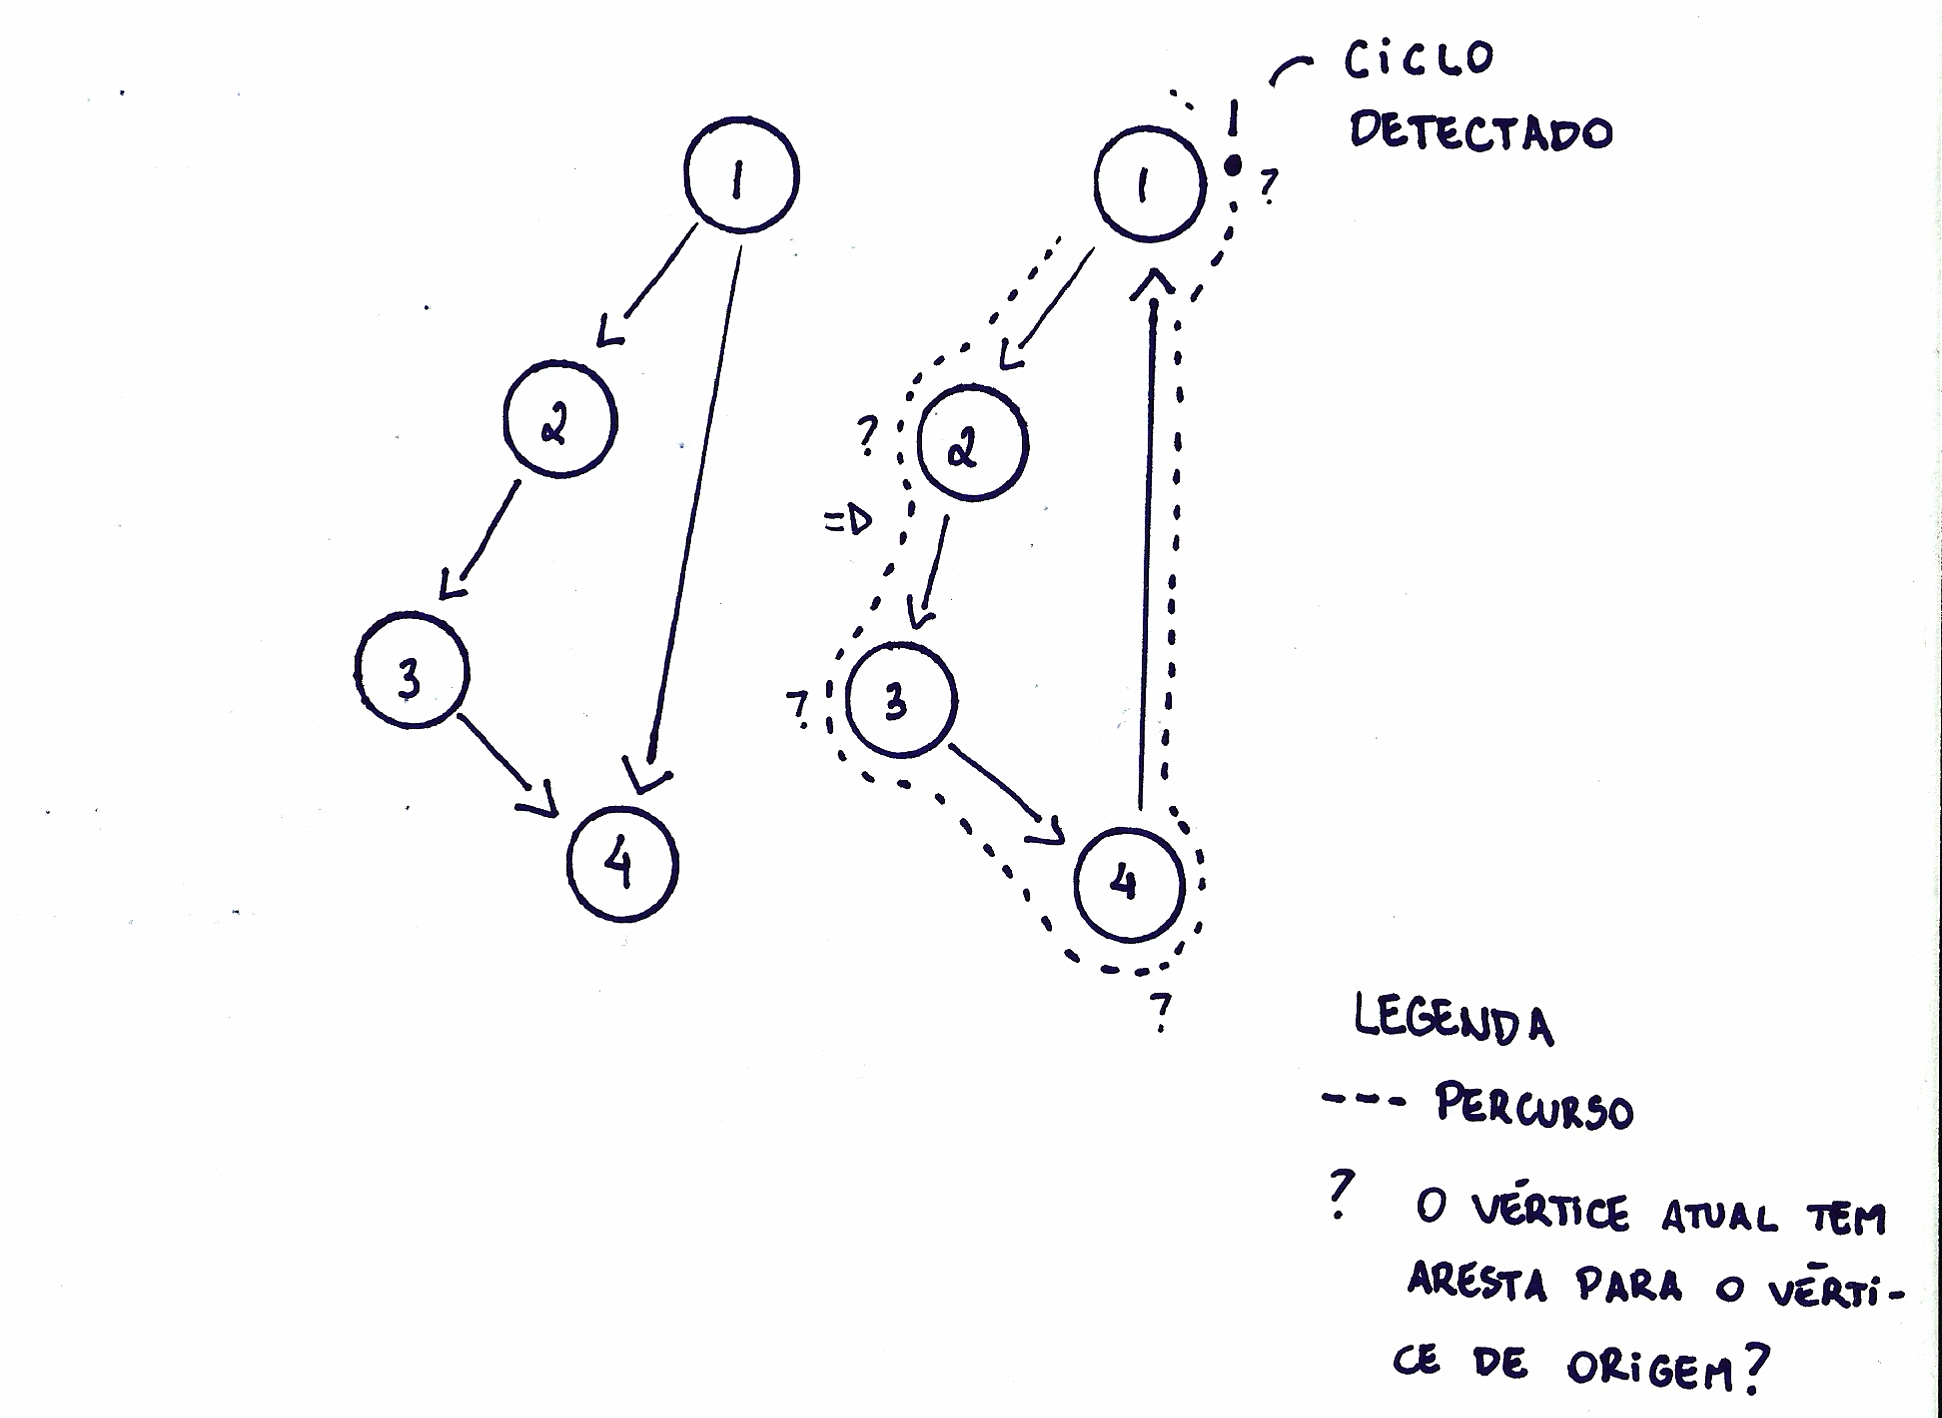 CiCLO
DETECTADO
1
1
?
2
?
2
=D
3
?
3
4
4
?
LEGENDA
--- PERCURSO
? O VÉRTICE ATUAL TEM
ARESTA PARA O VÉRTi-
CE DE ORiGEM?